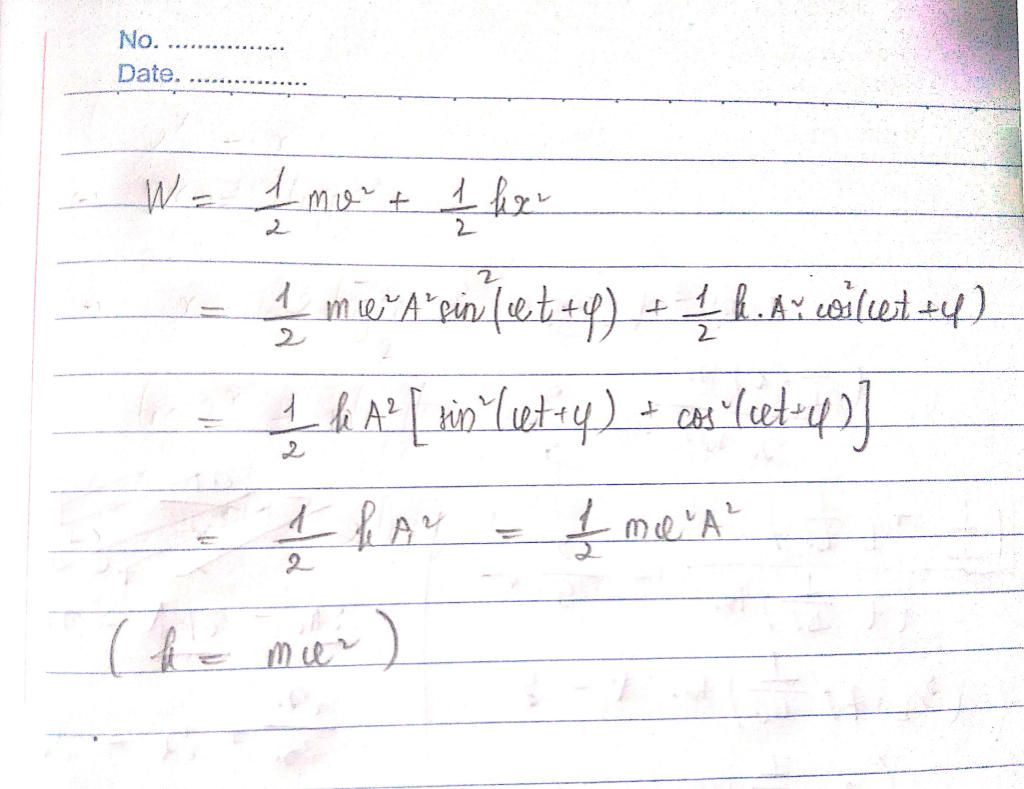 No. ................
Date. ................
W = 1/2 mv² + 1/2 kx²
= 1/2 mω²A² sin²(ωt+φ) + 1/2 k.A². cos²(ωt+φ)
= 1/2 kA² [ sin²(ωt+φ) + cos²(ωt+φ)]
= 1/2 kA² = 1/2 mω²A²
( k = mω² )